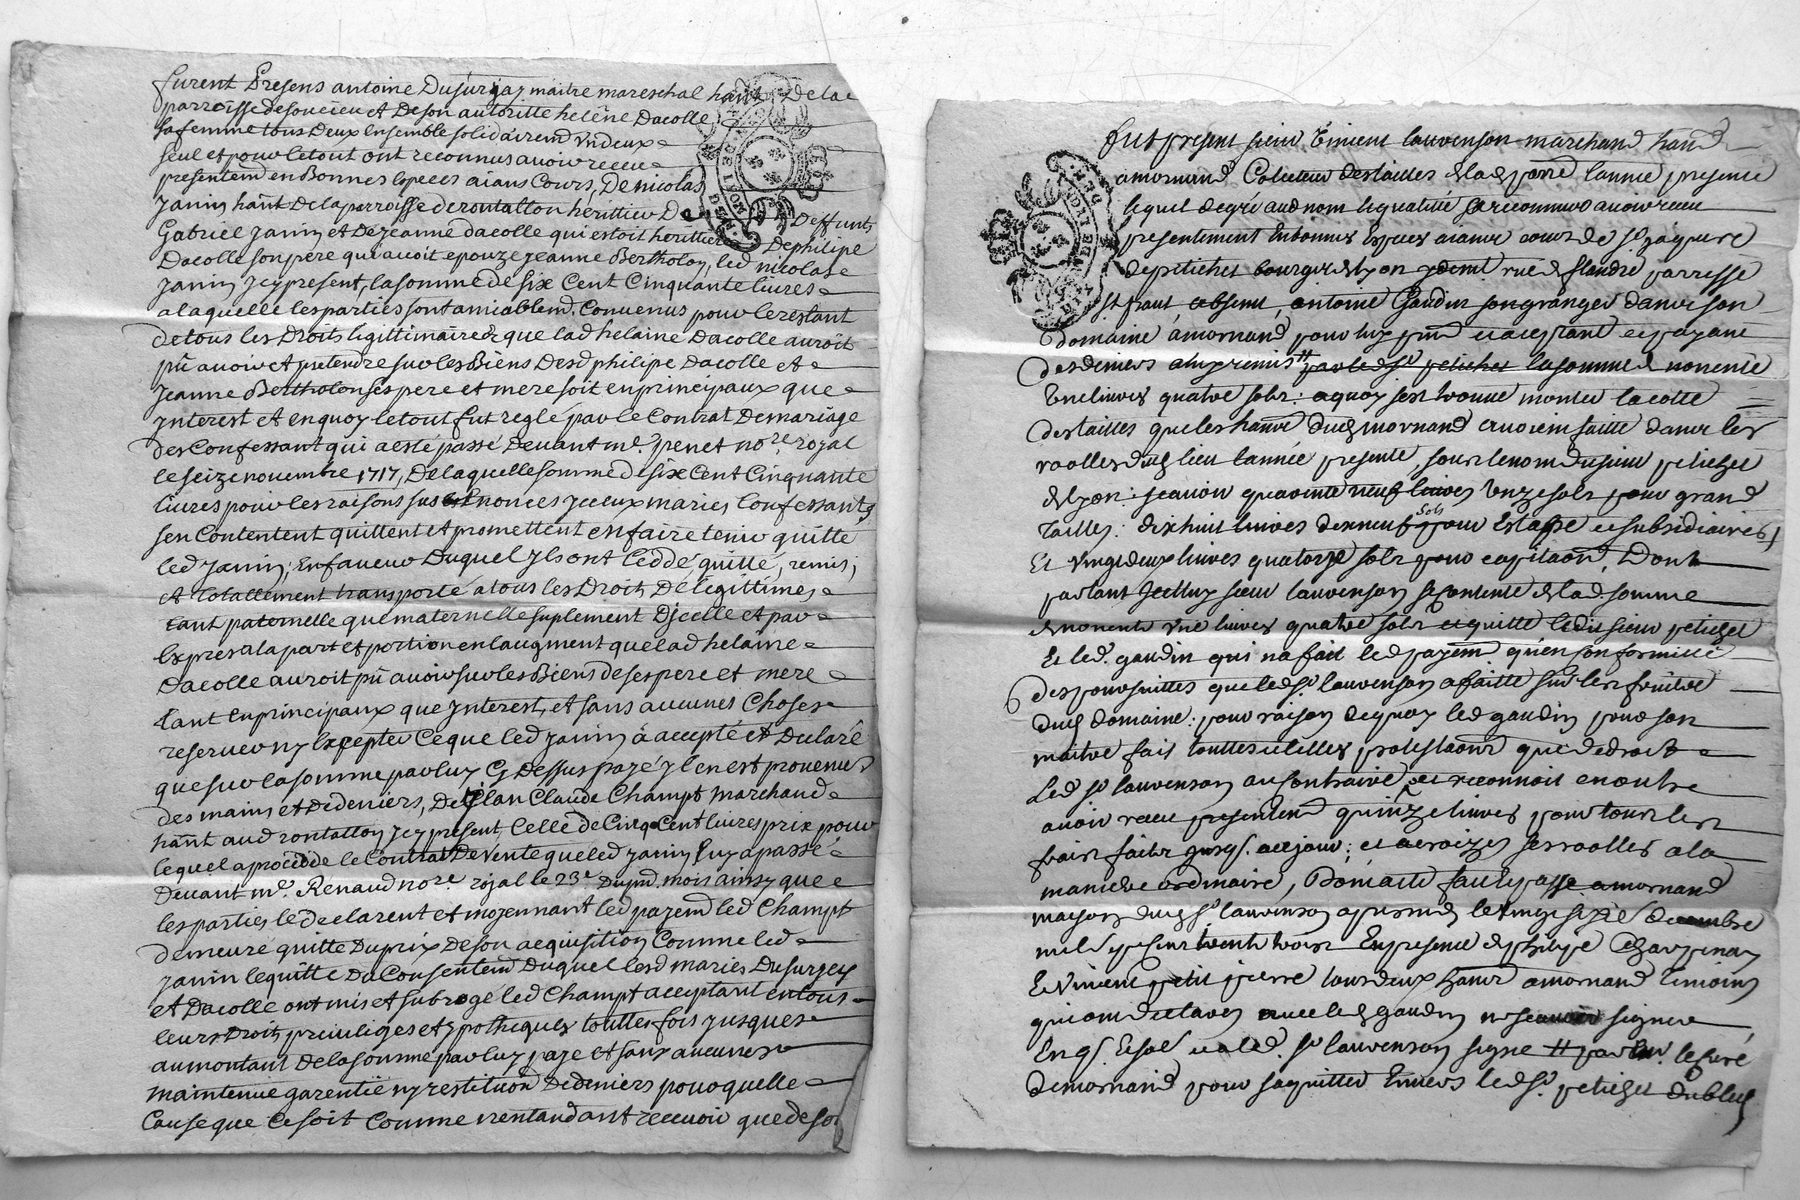 furent Presens antoine Dusurgay maitre mareschal hañt Dela
parroisse de soucieu et De son autoritte helêne Dacolle
sa femme tous Deux ensemble solidairem̃d un deux
seul et pour le tout ont reconnus avoir receu
presentem̃d en Bonnes Especes aians Cours, De nicolas
Janin hañt De la parroisse de rontallon hérittier De Deffunts
Gabriel Janin et De jeanne dacolle qui estoit herittiere De philipe
Dacolle son pere qui avoit epouzé jeanne Bertholon, led nicolas
Janin Jcy present, la somme de six Cent Cinquante livres
a laquelle les parties sont amiablem̃d Convenus pour le restant
de tous les Droits legittimaires que lad helaine Dacolle auroit
pû avoir et pretendre sur les Biens Desd philipe Dacolle et
Jeanne Bertholon ses pere et mere soit en principaux que
Jnterest et en quoy le tout fut reglé par le Contrat De mariage
des Confessant qui a esté passé Devant me. penet nore. royal
le seize novembre 1717, De laquelle somme de six Cent Cinquante
livres pour les raisons sus Enoncés Jceux mariés Confessants
sen Contentent quittent et promettent en faire tenir quitte
led Janin; En faveur Duquel Jls ont ceddé quitté, remis,
et totallement transporté a tous les Droits De legittimes
tant paternelle que maternelle suplement Djcelle et par
Exprés a la part et portion en laugment que lad helaine
Dacolle auroit pû avoir sur les Biens de ses pere et mere
tant en principaux que Jnterest, et sans aucunes Choses
reserver ny Excepter Ce que led Janin à accepté et Declaré
que sur la somme par luy Cy Dessus payé Jl en est provenu
des mains et De deniers, De Jean Claude Champt marchand
hañt aud rontallon Jcy present, Celle de Cinq Cent livres prix pour
lequel a procédé le Contrat De vente que led Janin luy a passé
Devant me. Renaud nore. royal le 23e Du pñd mois ainsy que
les parties le declarent et moyennant led payem̃d led Champt
demeure quitte Du prix De son acquisition Comme led
Janin le quitte Du Consentem̃d Duquel lesd mariés Dusurgey
et Dacolle ont mis et subrogé led Champt acceptant en tous
leurs Droits priviliges et ypotheques touttes fois jusques
au montant De la somme par luy payé et sans aucunes
maintenue garentie ny restitution De deniers pour quelle
Cause que Ce soit Comme nentandant recevoir que de son
fut present sieur Vincent lauvenson marchand hañd
a mornand Colecteur des tailles de lad parre lannée presente
lequel de gré aud nom et qualitté a reconnu avoir receu
presentement En bonnes Especes aiant cours de sr. jaques
de petichet bourgeois de lyon y demt rue de flandre parroisse
st paul, absent, antoine Gaudin son granger dans son
domaine à mornand pour luy pñt et acceptant et payant
des deniers a luy remis # par led sr petichet la somme de nonente
Une livres quatre sols: a quoy sest trouvé monter la cotte
des tailles que les hañts dud mornand avoient faitte dans les
roolles dud lieu lannée presente, sous le nom du sieur petichet
de lyon: scavoir quarente neuf livres Unze sols pour grand
Tailles: dix huit livres dix neuf sols pour Estappe et subsidiaires,
Et vingt deux livres quatorze sols pour capitaõn, Dont
partant Jcelluy sieur lauvenson se contente de lad. somme
de nonente une livres quatre sols et quitte ledit sieur petichet
Et led. gaudin qui na fait led payem̃ qu'en conformitté
des poursuittes que led sr. lauvenson a faitte sur les fruits
dud domaine: pour raison de quoy led gaudin pour son
maitre fait touttes et telles protestaõns que de droit
Led sr lauvenson au contraire et reconnoit en outre
avoir receu presentem̃d quinze livres pour tous les
frais faits jusqs. a ce jour; et a croizé ses roolles a la
maniere ordinaire, Dont acte fait et passé a mornand
maison dud sr. lauvenson apres midy le vingt sixie decembre
mil sept cent trente trois En presence de philipe Charpenay
Et vincent petit pierre tous deux hañts a mornand temoins
qui ont declaré avec led gaudin ne scavoir signer
Enqs. Et sol et a led. sr lauvenson signé # par Mr. le curé
de mornand pour saquitter Envers led sr. petichet